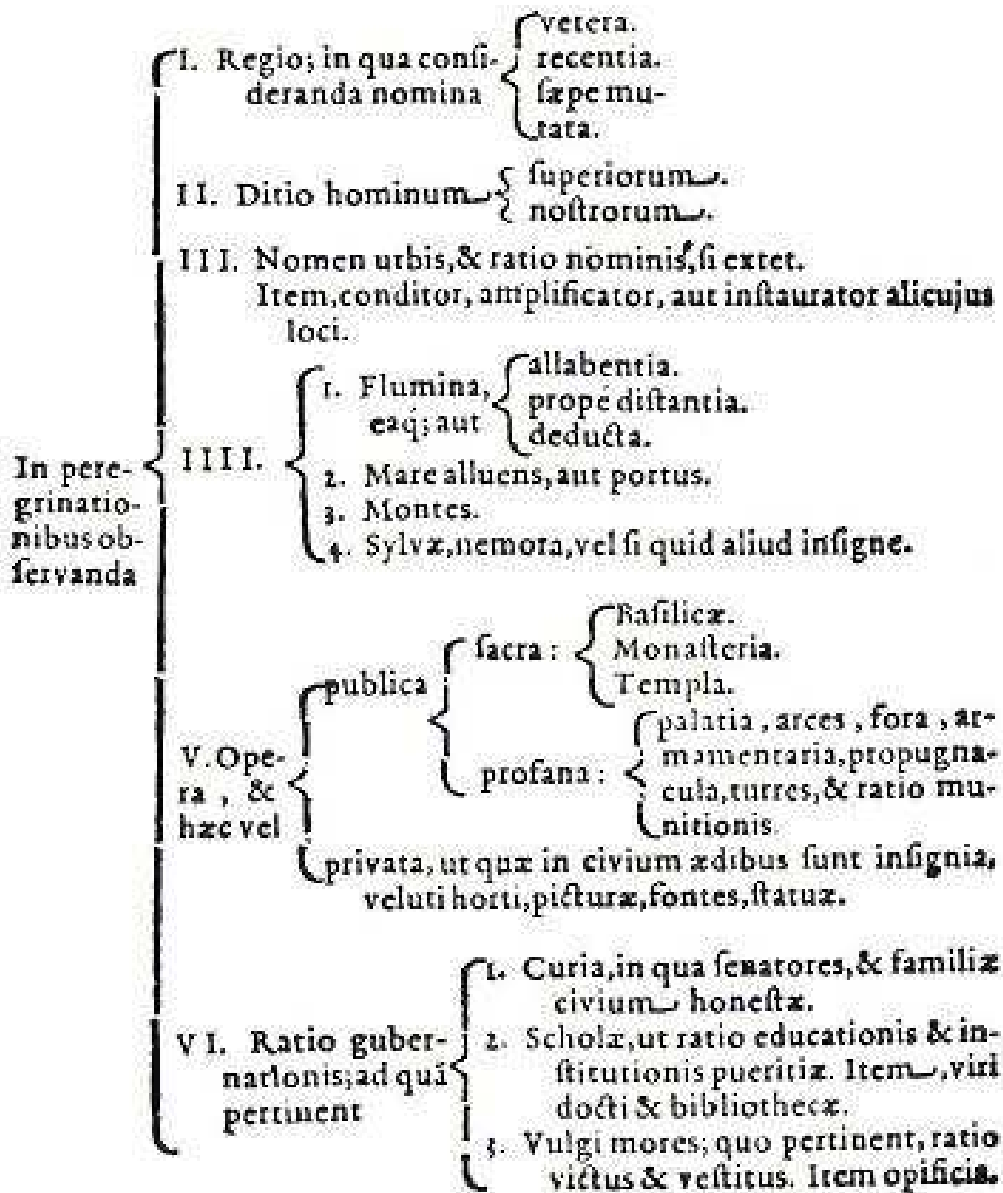 In pere-
grinatio-
nibus ob-
ſervanda
I. Regio; in qua conſi-
deranda nomina
vetera.
recentia.
ſæpe mu-
tata.
II. Ditio hominum
ſuperiorum.
noſtrorum.
III. Nomen urbis, & ratio nominis, ſi extet.
Item, conditor, amplificator, aut inſtaurator alicujus
loci.
IIII.
1. Flumina,
eaq́; aut
allabentia.
propè diſtantia.
deducta.
2. Mare alluens, aut portus.
3. Montes.
4. Sylvæ, nemora, vel ſi quid aliud inſigne.
V. Ope-
ra, &
hæc vel
publica
ſacra:
Baſilicæ.
Monaſteria.
Templa.
profana:
palatia, arces, fora, ar-
mamentaria, propugna-
cula, turres, & ratio mu-
nitionis.
privata, ut quæ in civium ædibus ſunt inſignia,
veluti horti, picturæ, fontes, ſtatuæ.
VI. Ratio guber-
nationis; ad quā
pertinent
1. Curia, in qua ſenatores, & familiæ
civium honeſtæ.
2. Scholæ, ut ratio educationis & in-
ſtitutionis pueritiæ. Item, viri
docti & bibliothecæ.
3. Vulgi mores; quo pertinent, ratio
victus & veſtitus. Item opificia.